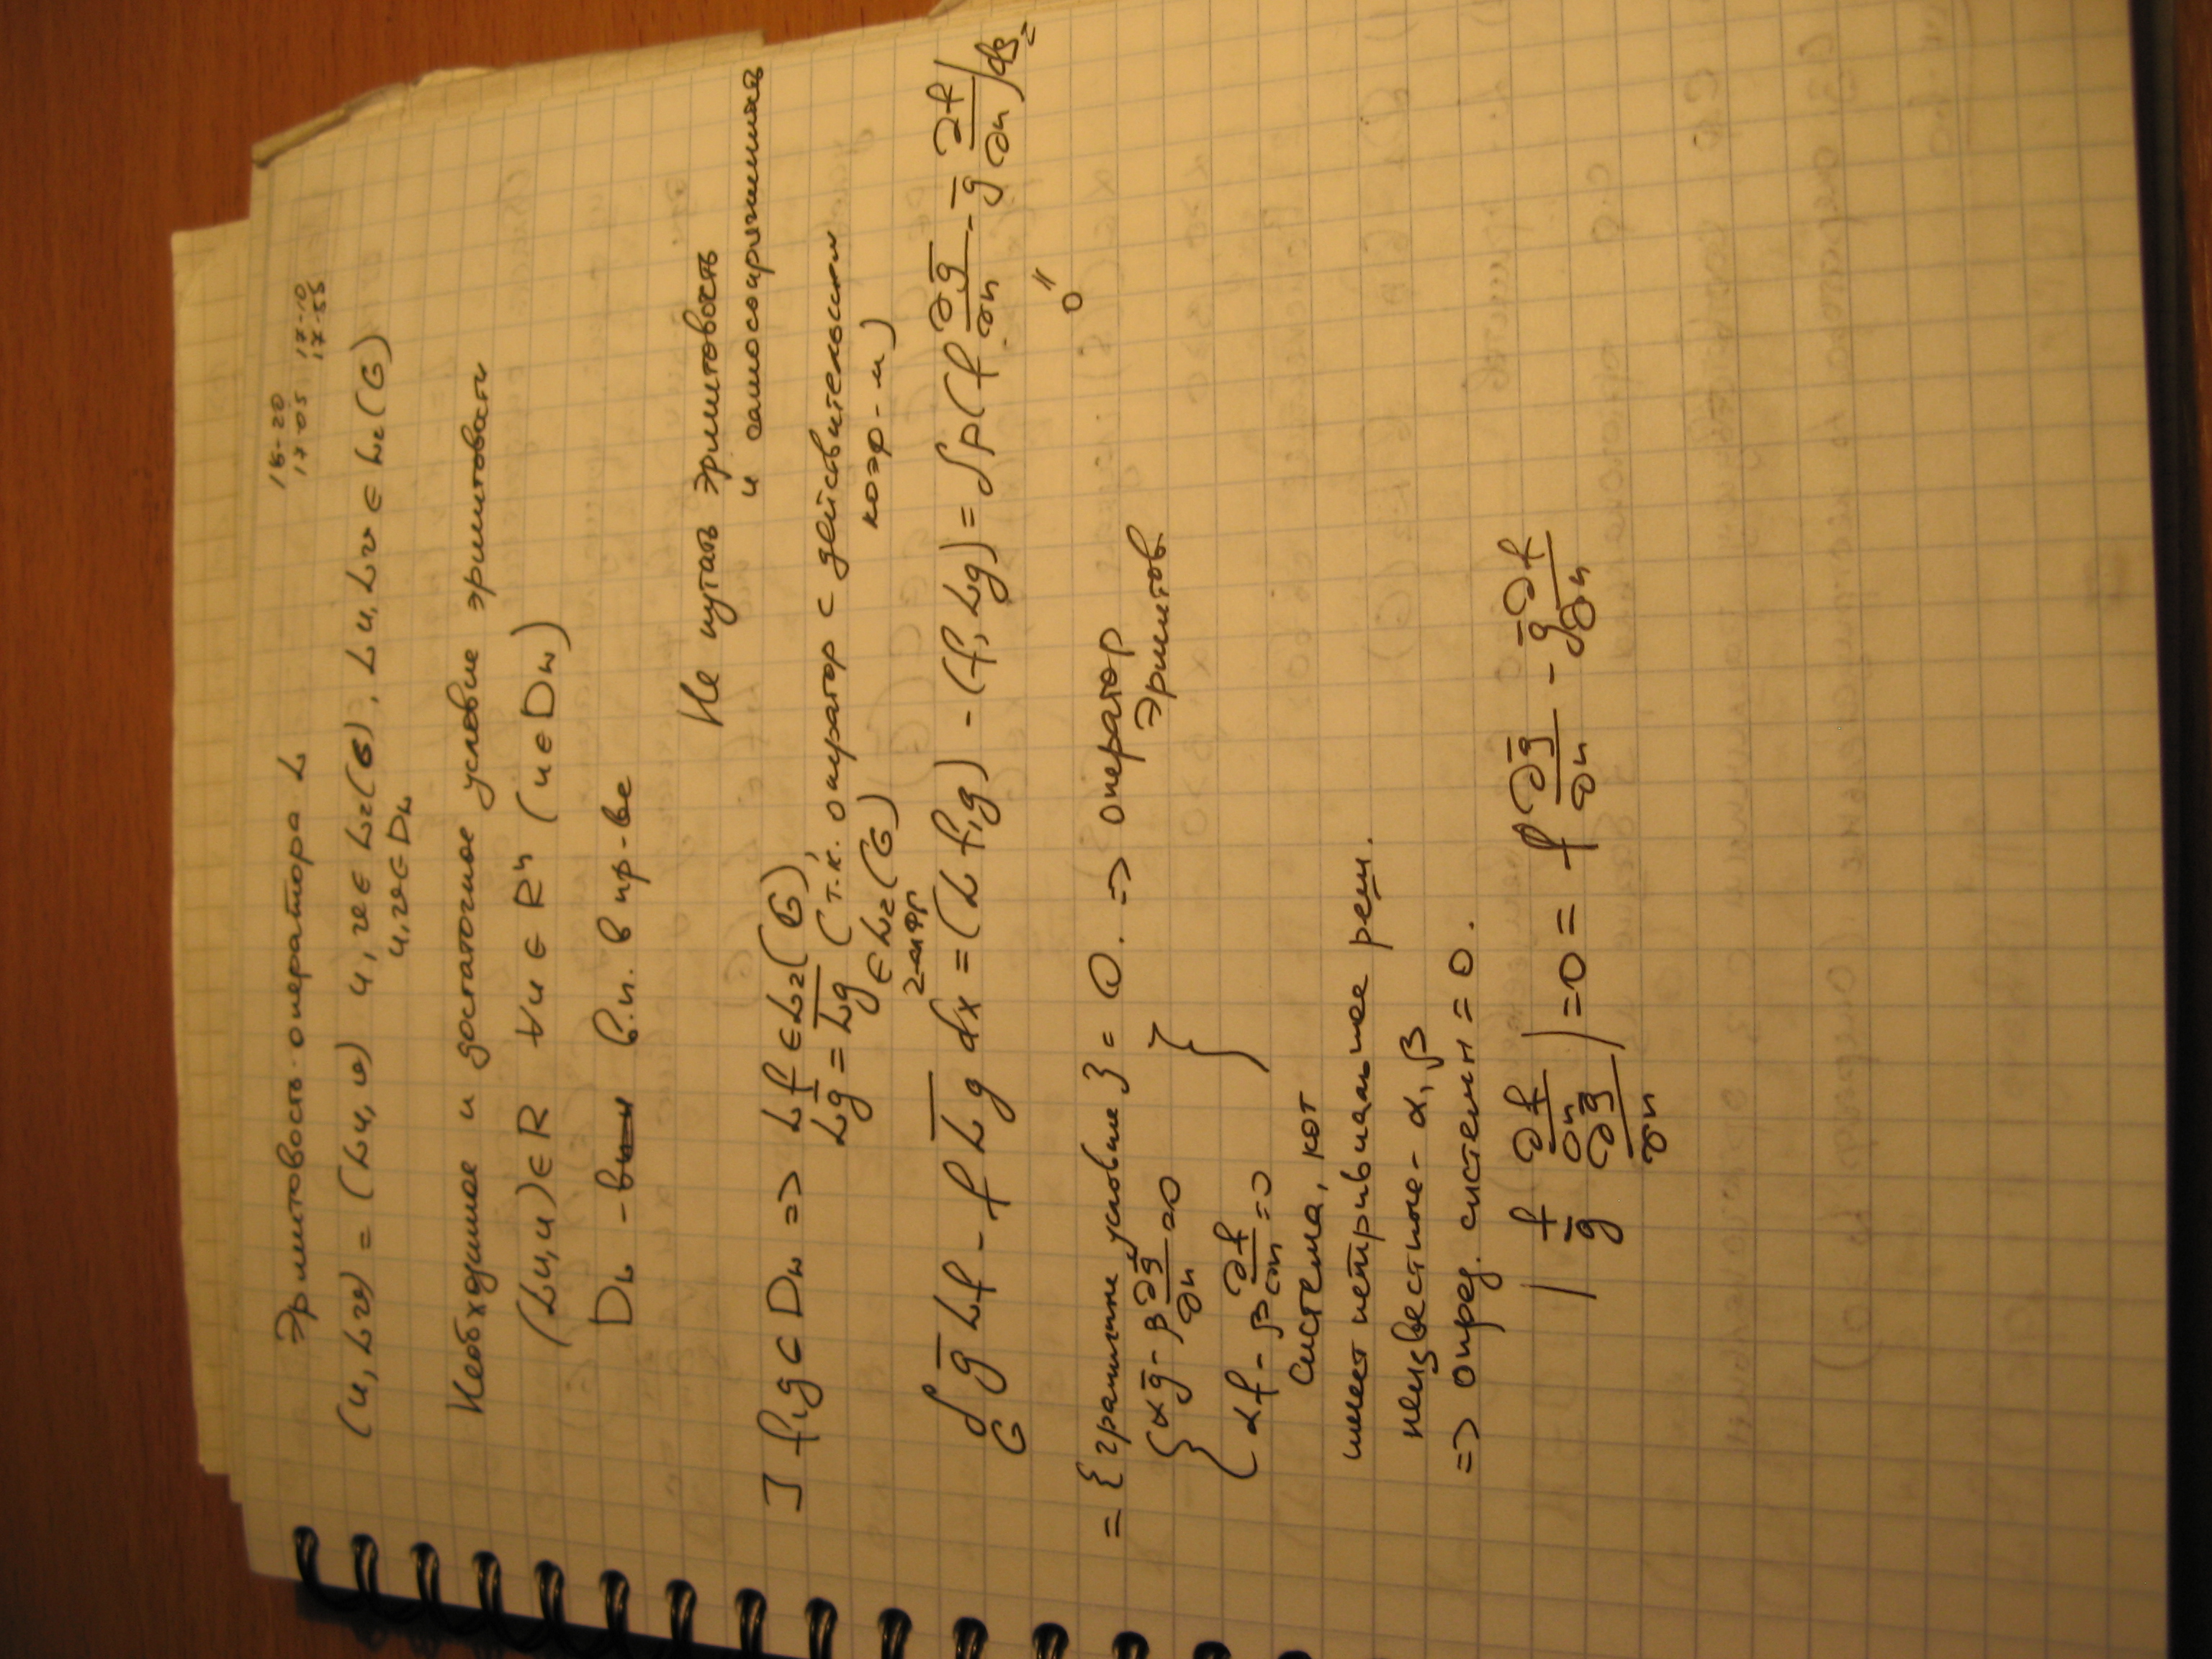 15-20
17-05 17-10
17-55
Эрмитовость оператора L
(u, Lv) = (Lu, v) u, v ∈ L₂(G), Lu, Lv ∈ L₂(G)
u, v ∈ D_L
Необходимое и достаточное условие эрмитовости
(Lu, u) ∈ R ∀u ∈ Rⁿ (u ∈ D_L)
D_L - в.п. в пр-ве
Не путать эрмитовость
и самосопряженность
] f, g ⊂ D_L => Lf ∈ L₂(G),
L\overline{g} = \overline{Lg} (т.к. оператор с действительными
∈ L₂(G) коэф-и)
∫_G \overline{g} Lf - f \overline{Lg} dx = (Lf, g) - (f, Lg) = ∫ p(f ∂\overline{g}/∂n - \overline{g} ∂f/∂n) dS =
0
= {граничные условие} = 0. => оператор
эрмитов
{ α\overline{g} - β ∂\overline{g}/∂n = 0 }
αf - β ∂f/∂n = 0
система, кот
имеет нетривиальное реш.
неизвестное - α, β
=> опред. системы = 0.
| f ∂f/∂n |
| \overline{g} ∂\overline{g}/∂n | = 0 = f ∂\overline{g}/∂n - \overline{g} ∂f/∂n